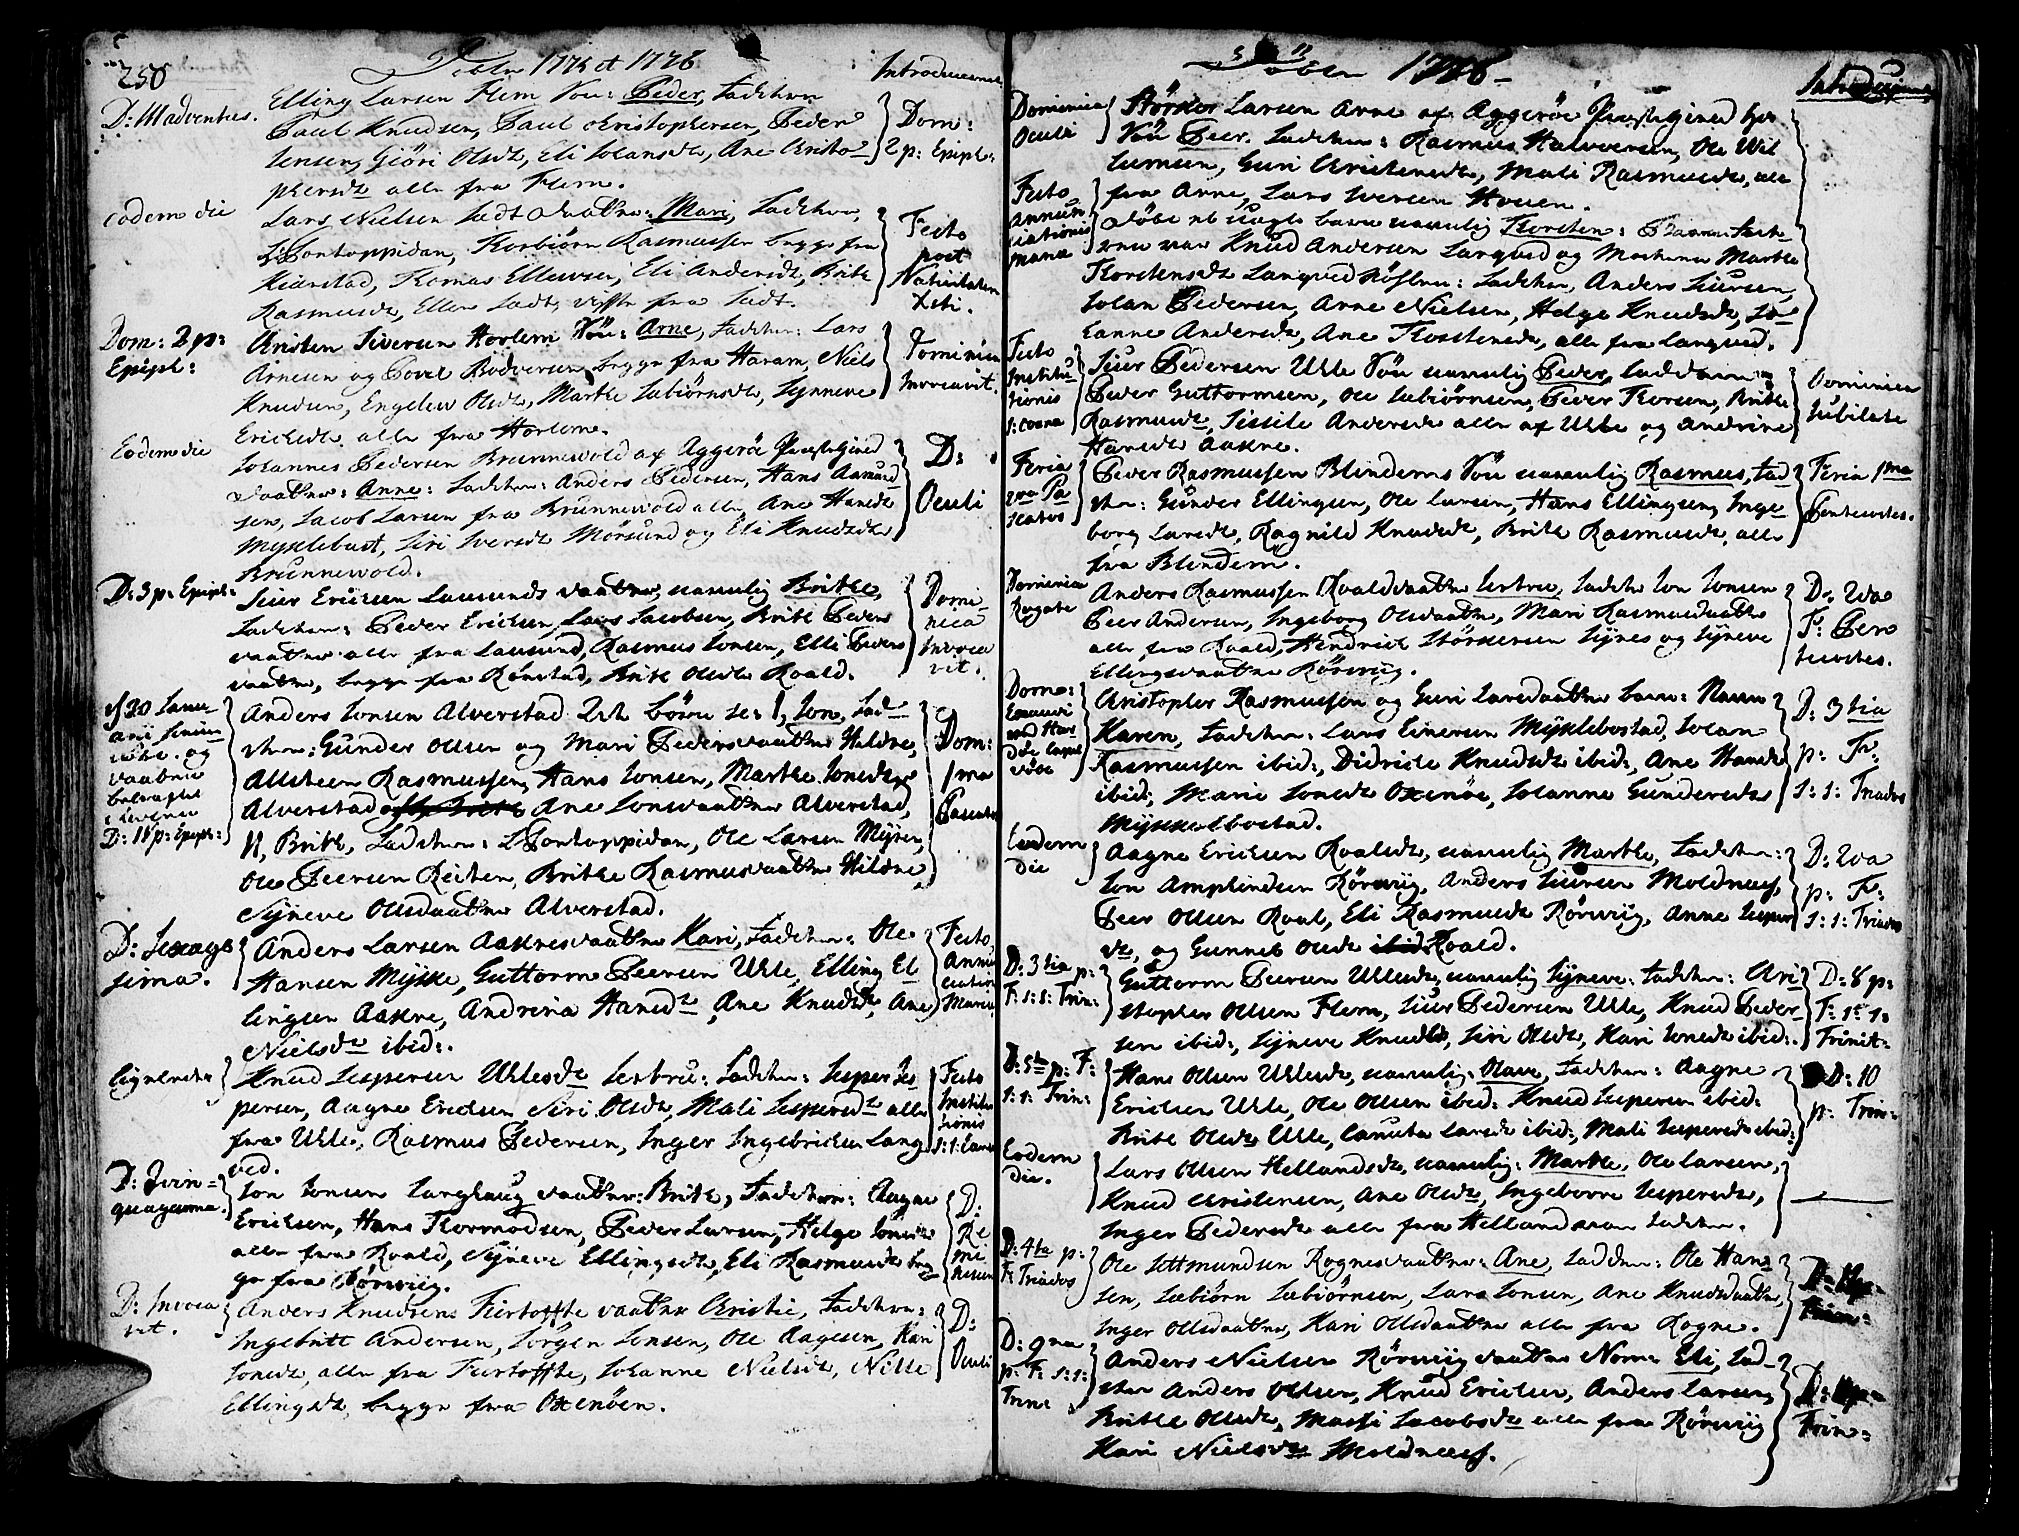 250
Døbte 1775 et 1776
Introducerede
D: III adventus.
Elling Larsen Flem Søn: Peder, Faddere
Paul Knudsen, Paul Christophersen, Peder
Jensen, Giöri Olsdr, Eli Johansdr, Ane Christo-
phersdr alle fra Flem.
Dom:
2 p: Epiph:
eodem die
Lars Nielsen datter: Mari, Faddere,
Pontoppidan, Thorbiörn Rasmussen begge fra
Kierstad, Thomas Ellevsen, Eli Andersdr, Brite
Rasmusdr, Ellen
Festo
post
Nativitatem
Xsti.
Dom: 2 p:
Epiph:
Christen Siversen Horlem Søn: Arne, Faddere: Lars
Arnesen og Povel Bodversen begge fra Haram, Niels
Knudsen, Engelev Olsdr, Marthe Isbiörnsdr, Synneve
Ericksdr alle fra Horlem.
Dominica
Invocavit.
Eodem die
Johannes Pedersen Brunnevold af Aggerö Præstegield
Daatter: Anne: Faddere: Anders Pedersen, Hans Aamund
sen, Jacob Larsen fra Brunnevold alle, Ane Hansdr
Myklebust, Siri Iversdr Mörsund og Eli Knudsdr
Brunnevold.
D:
Oculi
D: 3 p: Epiph:
Siur Ericksen Lausunds Daatter, namlig Brithe,
Faddere: Peder Ericksen, Lars Jacobsen, Brite Peders
daatter alle fra Lausund, Rasmus Jonsen, Elli Peders
daatter, begge fra Rönstad, Brite Olsdr Roald.
Domi-
nica
Invoca
vit.
d 20 Janu-
arii
og
D: 1 p: Epiph:
Anders Jonsen Alverstad 2de börn se: 1, Jon, Fad-
dere: Gunder Olsen og Mari Pedersdaatter Hildre,
Allsteen Rasmussen, Hans Jonsen, Marthe Jonsdr
Alverstad Ane Jonsdaatter Alverstad,
II, Brite, Faddere: Pontoppidan, Ole Larsen
Ole Peersen Reiten, Brithe Rasmusdaatter Hildre,
Synneve Olsdaatter Alverstad.
Dom:
1ma
D: Sexage
sima.
Anders Larsen Aakres daatter Kari, Faddere: Ole
Hansen Mykle, Guttorm Peersen Uhle, Elling El-
lingsen Aakre, Andrina Hansdr, Ane Knudsdr, Ane
Nielsdr ibid:
Festo
Annu
ciation
Mariæ
Knud Jespersen Uhlesdr Sertru: Faddere: Jesper Jes-
persen, Aagne Ericksen Siri Olsdr, Mali Jespersdr alle
fra Uhle, Rasmus Pedersen, Inger Ingebricksen Lang-
ved.
Festo
Institu
tionis
D: Qvin-
quagesima.
Jon Jonsen daatter: Brite, Faddere: Aagne
Ericksen, Hans Thormodsen, Peder Larsen, Helge Jonsdr
alle fra Roald, Synneve Ellingsdr, Eli Rasmusdr beg-
ge fra Rörviig.
D:
Re
mi
niscere
D: Invoca
vit.
Anders Knudsen Fiertoffte daatter Christie, Faddere:
Ingebritt Andersen, Jörgen Jonsen, Ole Aagesen, Kari
Jonsdr, alle fra Fiertoffte, Johanne Nielsdr, Nille
Ellingsdr, begge fra Oxenöen.
D:
Oculi
Døbte 1776
Introducerede
Dominica
Oculi
Störker Larsen Arne af Aggeröe Præstegield hans
Sön Peer. Faddere: Rasmus Halversen, Ole Wil
lumsen, Guri Christensdr, Mali Rasmusdr, alle
fra Arne, Lars Iversen Houen.
Festo
annun
ciationis
mariæ
Döbt et uægte barn namlig Thorsten:
var Knud Andersen Langved og Moderen Marthe
Thorstensdr Langved: Faddere, Anders Siursen,
Johan Pedersen, Arne Nielsen, Helge Knudsdr, Jo-
hanne Andersdr, Ane Thorstensdr, alle fra Langved.
Festo
Institu-
tionis
s: coenæ
Siur Pedersen Uhle Sön namlig Peder, Faddere:
Peder Guttormsen, Ole Isbiörnsen, Peder Thorsen, Brithe
Rasmusdr, Sissile Andersdr alle af Uhle og Andrine
Hansdr Aakre.
Dominica
Jubilate
Feria
2da Pa
scatos
Peder Rasmussen Blindems Sön namlig Rasmus, Fad
dere: Gunder Ellingsen, Ole Larsen, Hans Ellingsen, Inge-
borg Larsdr, Ragnild Knudsdr, Brite Rasmusdr, alle
fra Blindem.
Feria 1ma
Pentecostes.
Dominica
Rogate
Anders Rasmussen Roald daatter Sertru, Faddere Jon Jonsen
Peer Andersen, Ingeborg Olsdaatter, Mari Rasmusdaatter
alle fra Roald, Hendrick Störkersen Synes og Synneve
Ellingsdaatter Rörviig.
D: 2da
F: Pen
tecostes.
Dom:
Exaudi
Christopher Rasmussen og Guri Larsdaatter barn: Navn
Karen, Faddere: Lars Einersen Myklebostad, Johan
Rasmussen ibid:, Didrick Knudsdr ibid:, Ane Hansdr
ibid:, Marie Jonsdr Oxenöe, Johanne Gundersdr
Myklebostad.
D: 3tia
p: F:
S: S: Triados
Eodem
die
Aagne Ericksen Roalds dr, namlig Marthe, Faddere:
Jon Amphindsen Rörviig, Anders Siursen Moldnæss,
Peer Olsen Roal, Eli Rasmusdr Rörviig, Anne Jesper
dr, og Gunneb Olsdr Roald.
D: 2da
p: F:
S: S: Triados
D: 3tia p:
F: S: S: Trin:
Guttorm Peersen Uhlesdr, namlig Synneve: Faddere: Chri
stopher Olsen Flem, Siur Pedersen Uhle, Knud Peder-
sen ibid:, Synneve Knudsdr, Siri Olsdr, Kari Jonsdr ibid:.
D: 8 p:
F: S: S:
Trinit:
D: 5te p: F:
S: S: Trin:
Hans Olsen Uhlesdr, namlig: Olave, Faddere: Aagne
Ericksen Uhle, Ole Olsen ibid: Knud Jespersen ibid:
Brite Olsdr Uhle, Canuta Larsdr ibid:, Mali Jespersdr ibid:
D: 10
p: Trin:
Eodem
die.
Lars Olsen Hellandsdr, namlig: Marthe, Ole Larsen,
Knud Christensen, Ane Olsdr, Ingeborre Jespersdr,
Inger Pedersdr alle fra Helland Faddere.
D: 4ta p:
F: Triados
Ole Settmundsen Rognes daatter: Ane, Faddere: Ole Han-
sen, Isbiörn Isbiörnsen, Lars Jonsen, Ane Knudsdaatter,
Inger Olsdaatter, Kari Olsdaatter alle fra Rogne.
Trin:
D: 9na
p: F: S: S:
Trine
Anders Nielsen Rörviig daatter Navn: Eli, Fad-
dere Anders Olsen, Knud Ericksen, Anders Larsen,
Brithe Olsdr, Massi Jacobsdr alle fra Rörviig
Kari Nielsdr Moldnæss.
Trin: